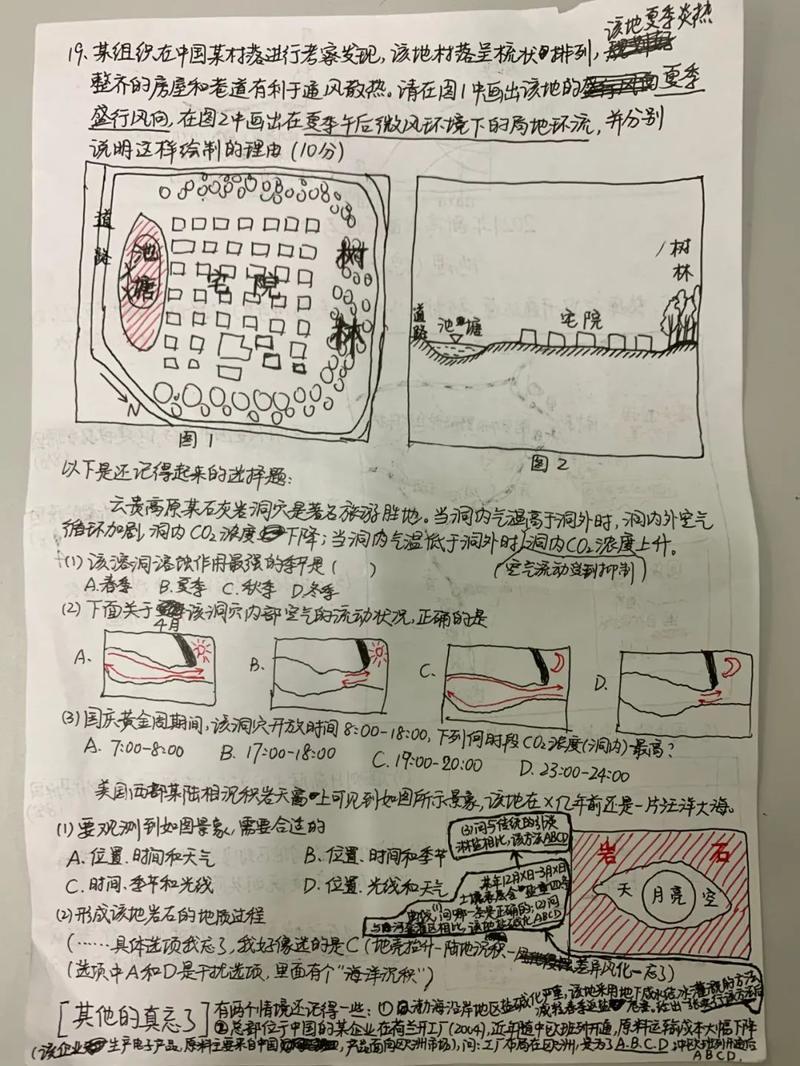 该地夏季炎热
19. 某组织在中国某村落进行考察发现,该地村落呈梳状排列,
整齐的房屋和巷道有利于通风散热。请在图1中画出该地的夏季
盛行风向,在图2中画出在夏季午后微风环境下的局地环流,并分别
说明这样绘制的理由(10分)
道路
池塘
宅院
树林
N
图1
树林
道路
池塘
宅院
图2
以下是还记得起来的选择题:
云贵高原某石灰岩洞穴是著名旅游胜地。当洞内气温高于洞外时,洞内外空气
循环加剧,洞内CO2浓度下降;当洞内气温低于洞外时,洞内CO2浓度上升。
(空气流动受到抑制)
(1) 该溶洞溶蚀作用最强的季节是( )
A.春季 B.夏季 C.秋季 D.冬季
(2) 下面关于4月该洞穴内部空气的流动状况,正确的是
A. B. C. D.
(3) 国庆黄金周期间,该洞穴开放时间8:00-18:00,下列何时段CO2浓度(洞内)最高?
A. 7:00-8:00 B. 17:00-18:00 C. 19:00-20:00 D. 23:00-24:00
美国西部某陆相沉积岩天窗上可见到如图所示景象,该地在X亿年前还是一片汪洋大海。
(1) 要观测到如图景象,需要合适的
A. 位置、时间和天气 B. 位置、时间和季节
C. 时间、季节和光线 D. 位置、光线和天气
(2) 形成该地岩石的地质过程
(……具体选项我忘了,我好像选的是C(地壳抬升-陆地沉积-差异风化-忘了)
(选项中A和D是干扰选项,里面有个“海洋沉积”)
岩石
天 月亮 空
(3) 问与传统的引淡淋盐相比,该方法ABCD
某年12月X日-3月X日
[其他的真忘了]
有两个情境还记得一些:①渤海沿岸地区盐碱化严重,该地采用地下咸水结冰灌溉的方法
②总部位于中国的某企业在荷兰开工厂(2004),近年随中欧班列开通,原料运输成本大幅下降
(该企业生产电子产品,原料主要来自中国,产品面向欧洲市场),问:工厂布局在欧洲,是为了A.B.C.D.;中欧班列开通后
A B C D.